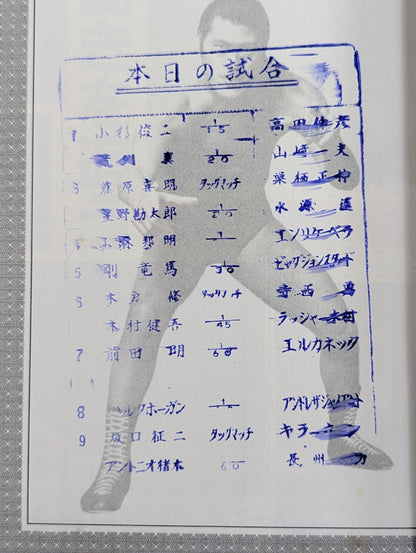 本日の試合
1 小杉俊二 1/15 高田伸彦
真 1/20 山崎一夫
3 藤原喜明 タッグマッチ 栗栖正伸
星野勘太郎 1/20 永源遥
4 小林邦明 1/ エンリケベラ
5 剛竜馬 1/30
6 木戸修 タッグマッチ 寺西勇
木村健吾 1/45 ラッシャー木村
7 前田明 1/60 エルカネック
8 ハルクホーガン 1/ アンドレザジャイアント
9 坂口征二 タッグマッチ キラーカーン
アントニオ猪木 60 長州力